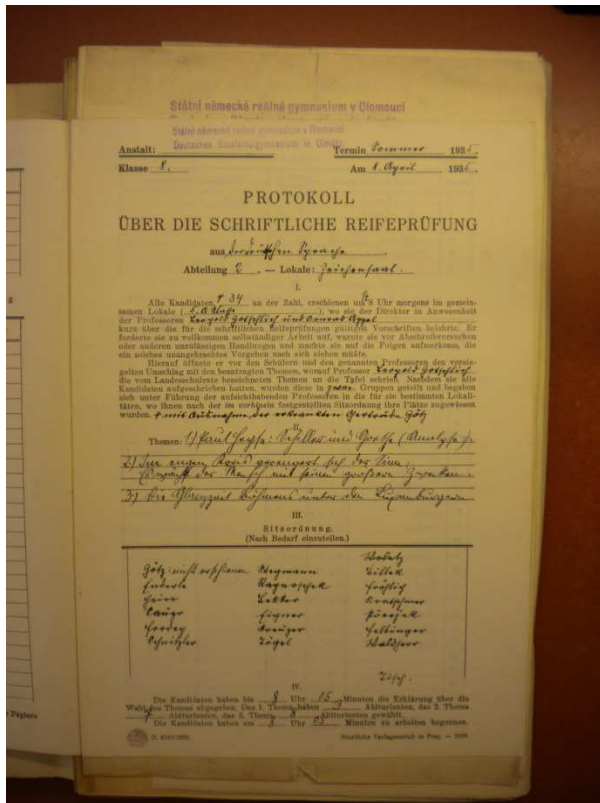 Státní německé reálné gymnasium v Olomouci
Státní německé reálné gymnasium v Olomouci.
Deutsches Staatsrealgymnasium in Olmütz.
Anstalt: Termin Sommer 1935.
Klasse 8. Am 8. April 1935.
PROTOKOLL
ÜBER DIE SCHRIFTLICHE REIFEPRÜFUNG
aus der deutschen Sprache
Abteilung 2. — Lokale: Zeichensaal.
I.
Alle Kandidaten, + 34 an der Zahl, erschienen um 8 Uhr morgens im gemein-
samen Lokale ( ), wo sie der Direktor in Anwesenheit
der Professoren Leopold Gotschlich und Konrad Appel
kurz über die für die schriftlichen Reifeprüfungen gültigen Vorschriften belehrte. Er
forderte sie zu vollkommen selbständiger Arbeit auf, warnte sie vor Abschreibversuchen
oder anderen unzulässigen Handlungen und machte sie auf die Folgen aufmerksam, die
ein solches unangebrachtes Vorgehen nach sich ziehen müßte.
Hierauf öffnete er vor den Schülern und den genannten Professoren den versie-
gelten Umschlag mit den beantragten Themen, worauf Professor Leopold Gotschlich
die vom Landesschulrate bezeichneten Themen an die Tafel schrieb. Nachdem sie alle
Kandidaten aufgeschrieben hatten, wurden diese in zwei Gruppen geteilt und begaben
sich unter Führung der aufsichthabenden Professoren in die für sie bestimmten Lokali-
täten, wo ihnen nach der im vorhinein festgestellten Sitzordnung ihre Plätze zugewiesen
wurden. + mit Ausnahme der erkrankten Gertrude Götz
II.
Themen: 1) Paul Heyse: Schiller und Goethe (Analyse)
2) Im engen Kreis verengert sich der Sinn.
Es wächst der Mensch mit seinen größeren Zwecken.
3) Die Glanzzeit Böhmens unter den Luxemburgern
III.
Sitzordnung.
(Nach Bedarf einzuteilen.)
Götz: nicht erschienen Stegmann
Enderle
Hein Fröhlich
Lauer Eigner Kratschmer
Kreuzer Felbinger
Schnitzler Vögel Waldherr
IV.
Die Kandidaten haben bis 8 Uhr 05 Minuten die Erklärung über die
Wahl des Themas abgegeben. Das 1. Thema haben Abiturienten, das 2. Thema
Abiturienten, das 3. Thema 8 Abiturienten gewählt.
Die Kandidaten haben um 8 Uhr 05 Minuten zu arbeiten begonnen.
Staatliche Verlagsanstalt in Prag.
Papiers